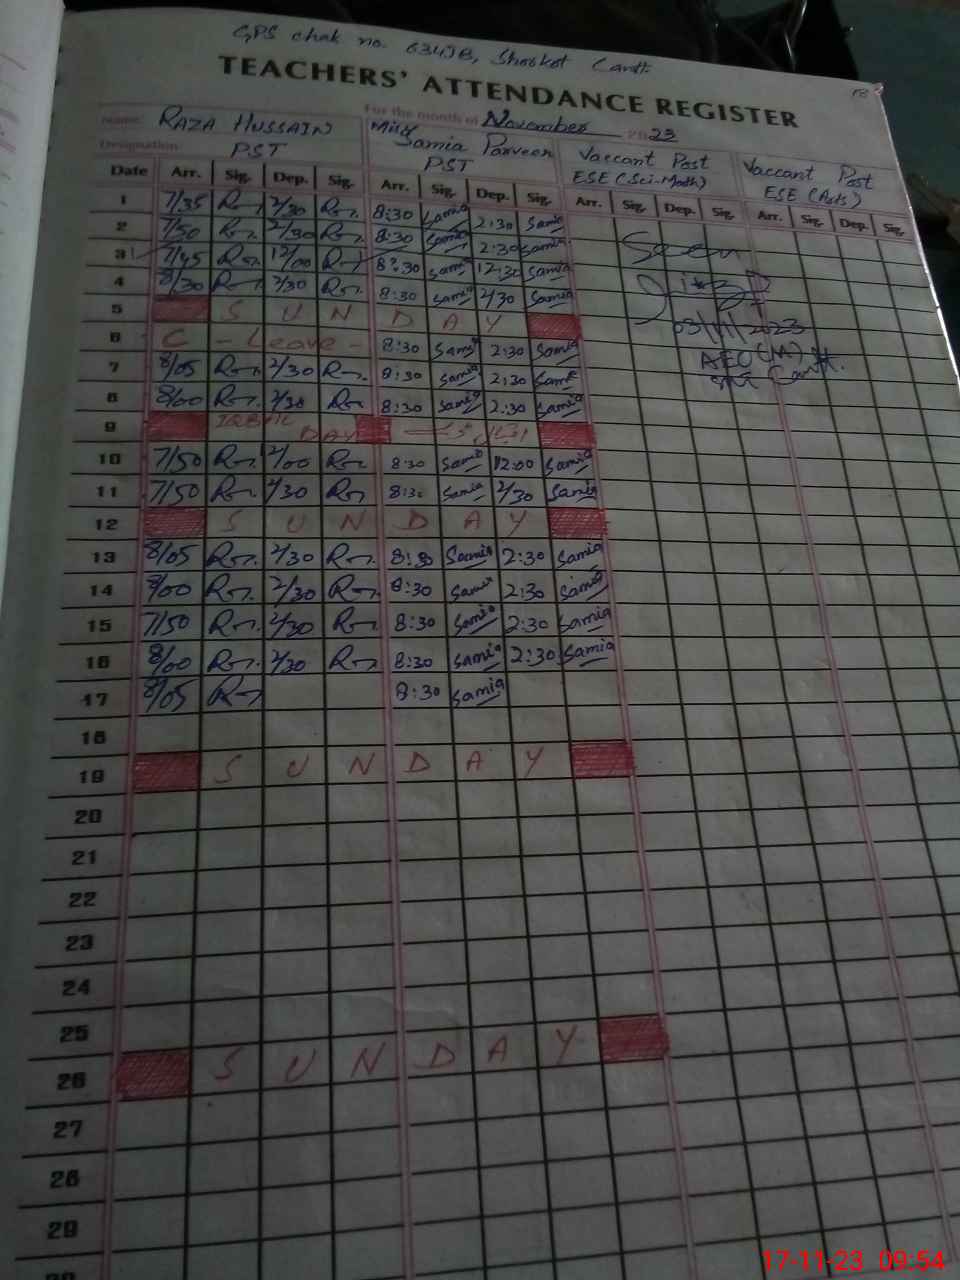 GPS chak no. 634JB, Shorkot Cantt.
TEACHERS' ATTENDANCE REGISTER
18
For the month of November 2023
Name: RAZA HUSSAIN Miss Samia Parveen Vaccant Post Vaccant Post
Designation PST PST ESE (Sci-Math) ESE (Arts)
Date Arr. Sig. Dep. Sig. Arr. Sig. Dep. Sig. Arr. Sig. Dep. Sig. Arr. Sig. Dep. Sig.
1 7/35 2/30 8:30 Samia 2:30 Samia
2 7/50 2/30 8:30 Samia 2:30 Samia
3 7/45 12/00 8:30 Samia 12:30 Samia
4 8/30 2/30 8:30 Samia 2/30 Samia
5 S U N D A Y
6 C - Leave - 8:30 Samia 2:30 Samia
7 8/05 2/30 8:30 Samia 2:30 Samia
8 8/00 2/30 8:30 Samia 2:30 Samia
9 IQBAL DAY
10 7/50 12/00 8:30 Samia 12:00 Samia
11 7/50 2/30 8:30 Samia 2/30 Samia
12 S U N D A Y
13 8/05 2/30 8:30 Samia 2:30 Samia
14 8/00 2/30 8:30 Samia 2:30 Samia
15 7/50 2/30 8:30 Samia 2:30 Samia
16 8/00 2/30 8:30 Samia 2:30 Samia
17 8/05 8:30 Samia
18
19 S U N D A Y
20
21
22
23
24
25
26 S U N D A Y
27
28
29
30
Seen
03/11/2023
AEO (M)
Cantt.
17-11-23 09:54